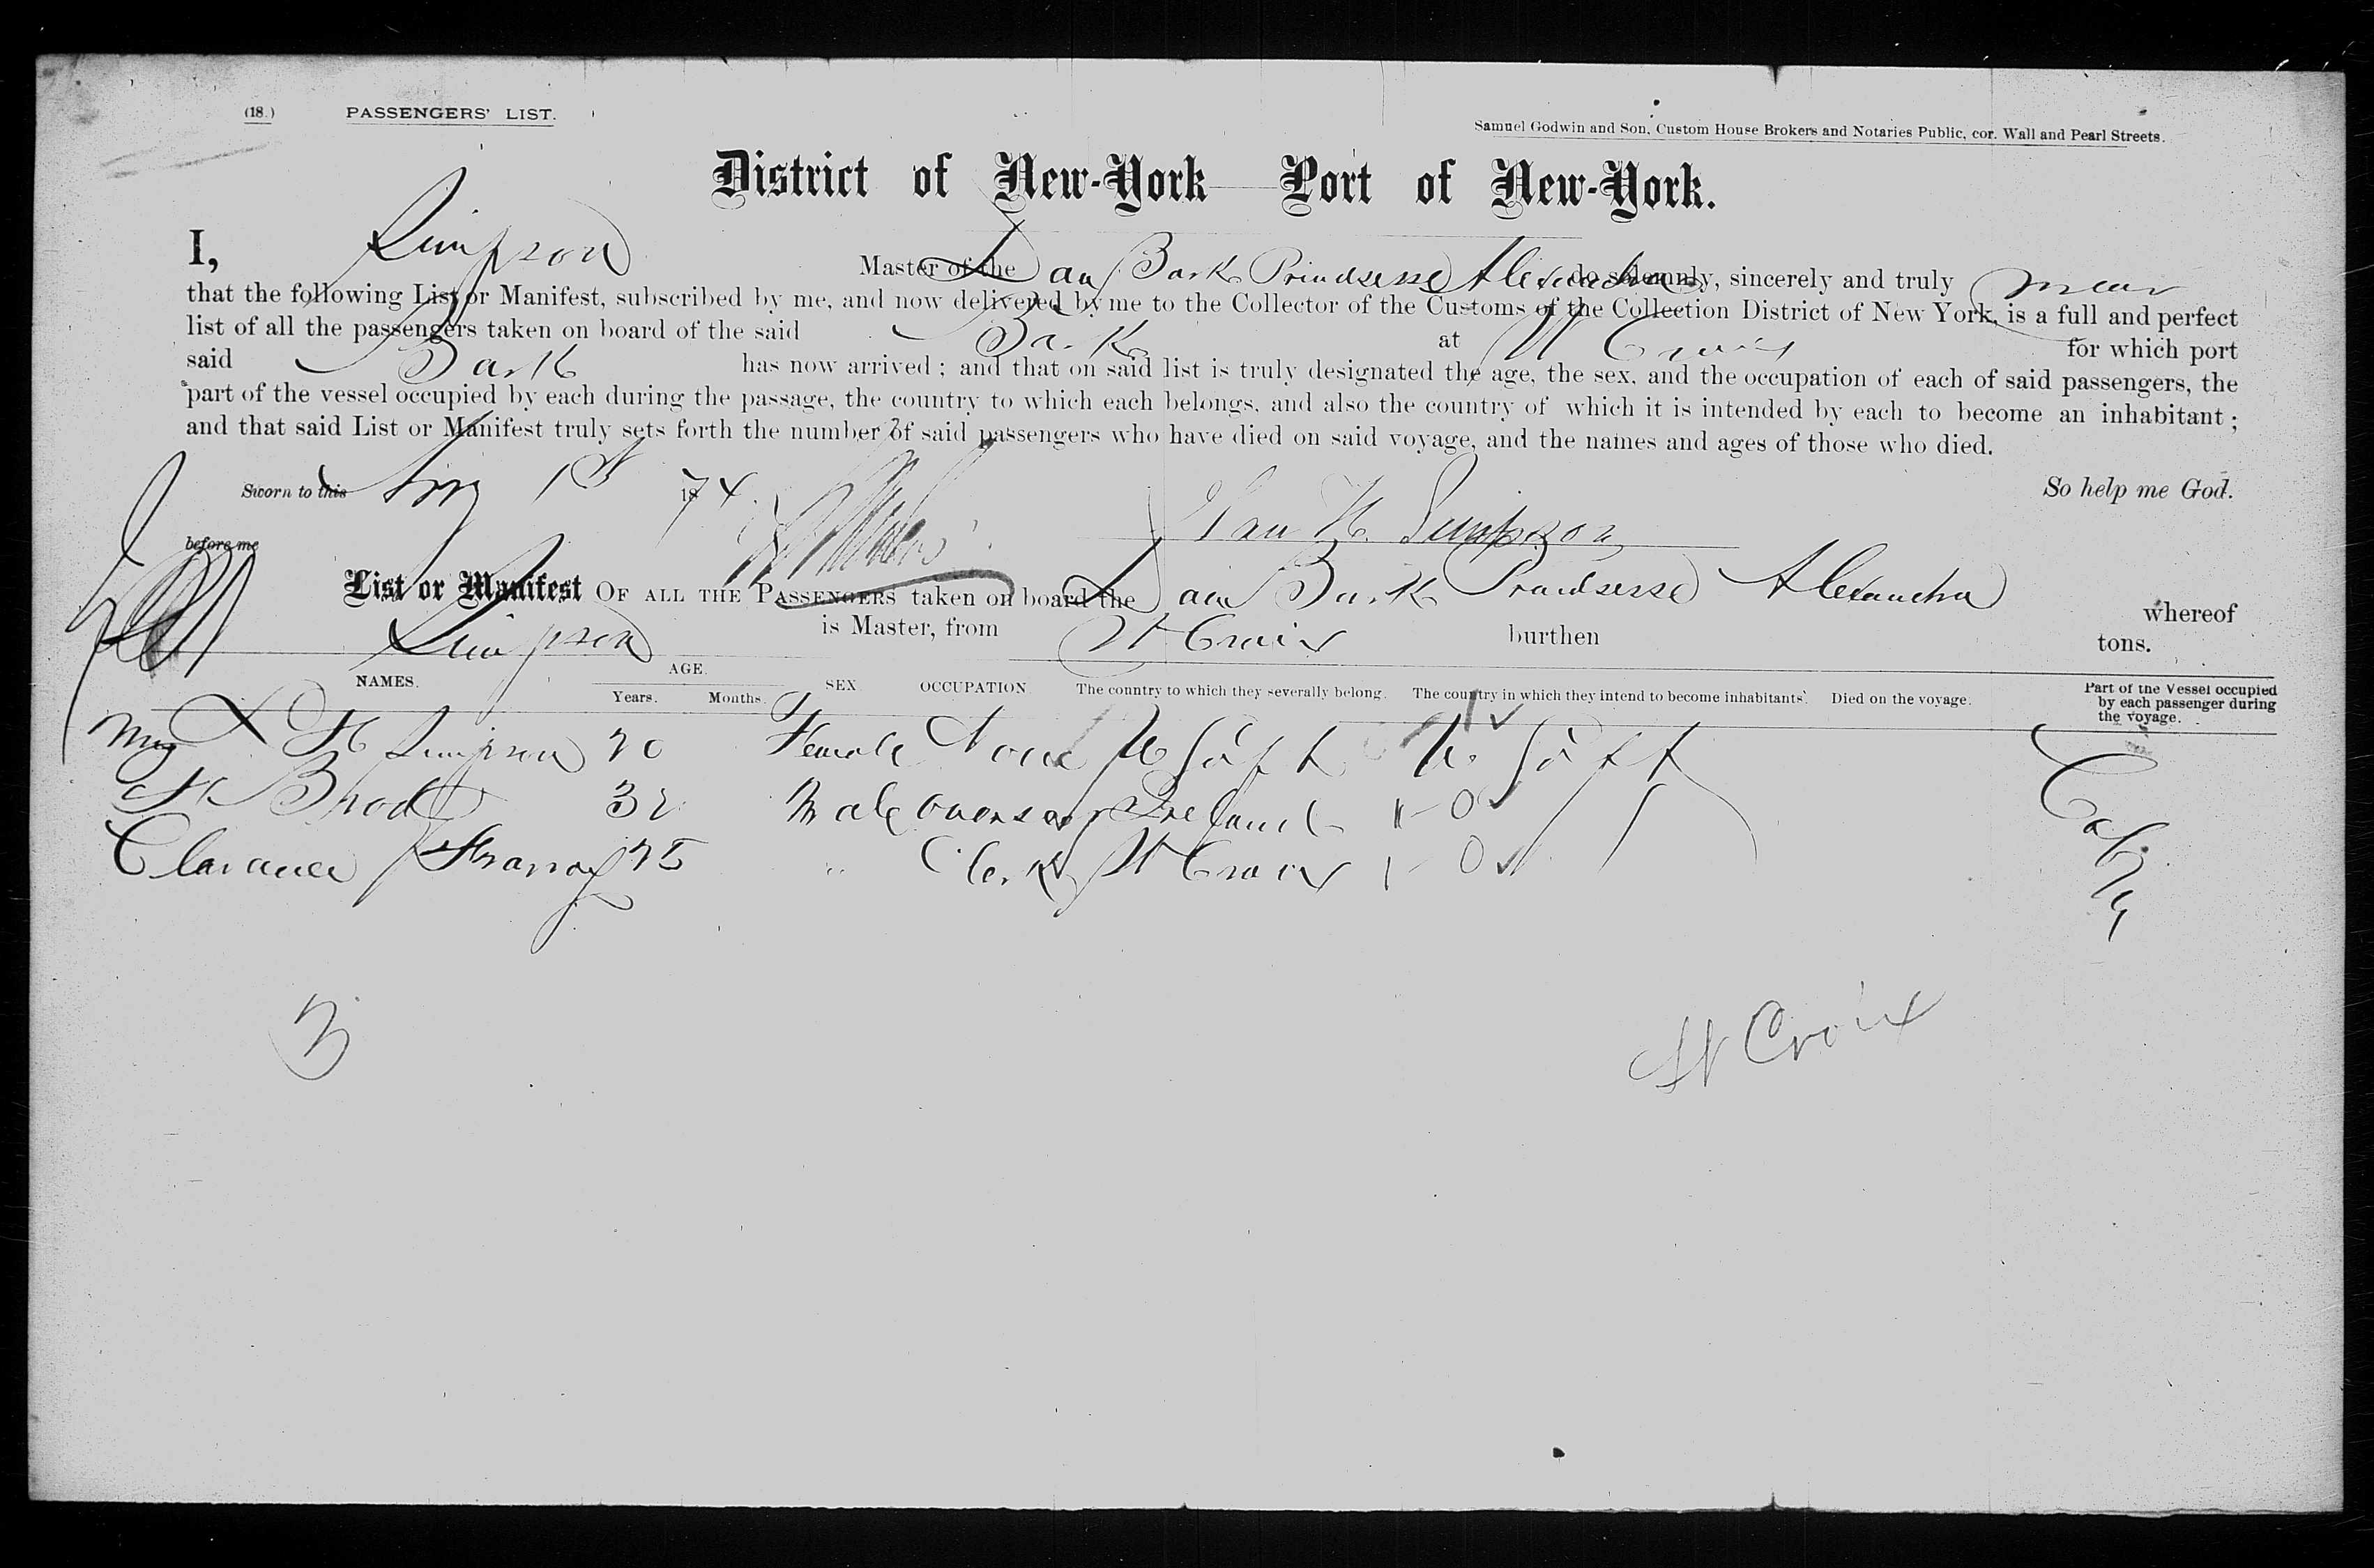 (18.) PASSENGERS' LIST.
Samuel Godwin and Son, Custom House Brokers and Notaries Public, cor. Wall and Pearl Streets.
District of New-York Port of New-York.
I, Simpson Master of the Dan Bark Prindsesse Alexandra do solemnly, sincerely and truly swear
that the following List or Manifest, subscribed by me, and now delivered by me to the Collector of the Customs of the Collection District of New York, is a full and perfect
list of all the passengers taken on board of the said Bark at St Croix for which port
said Bark has now arrived; and that on said list is truly designated the age, the sex, and the occupation of each of said passengers, the
part of the vessel occupied by each during the passage, the country to which each belongs, and also the country of which it is intended by each to become an inhabitant;
and that said List or Manifest truly sets forth the number of said passengers who have died on said voyage, and the names and ages of those who died.
Sworn to this Aug 1st 1874. So help me God.
H. Simpson
before me
List or Manifest OF ALL THE PASSENGERS taken on board the Dan Bark Prindsesse Alexandra whereof
Simpson is Master, from St Croix burthen tons.
NAMES. AGE. Years. Months. SEX OCCUPATION. The country to which they severally belong. The country in which they intend to become inhabitants. Died on the voyage. Part of the Vessel occupied by each passenger during the voyage.
H Simpson 20 Female None
32 Male overseer Ireland
Clarance 25 " Clerk St Croix
3
St Croix